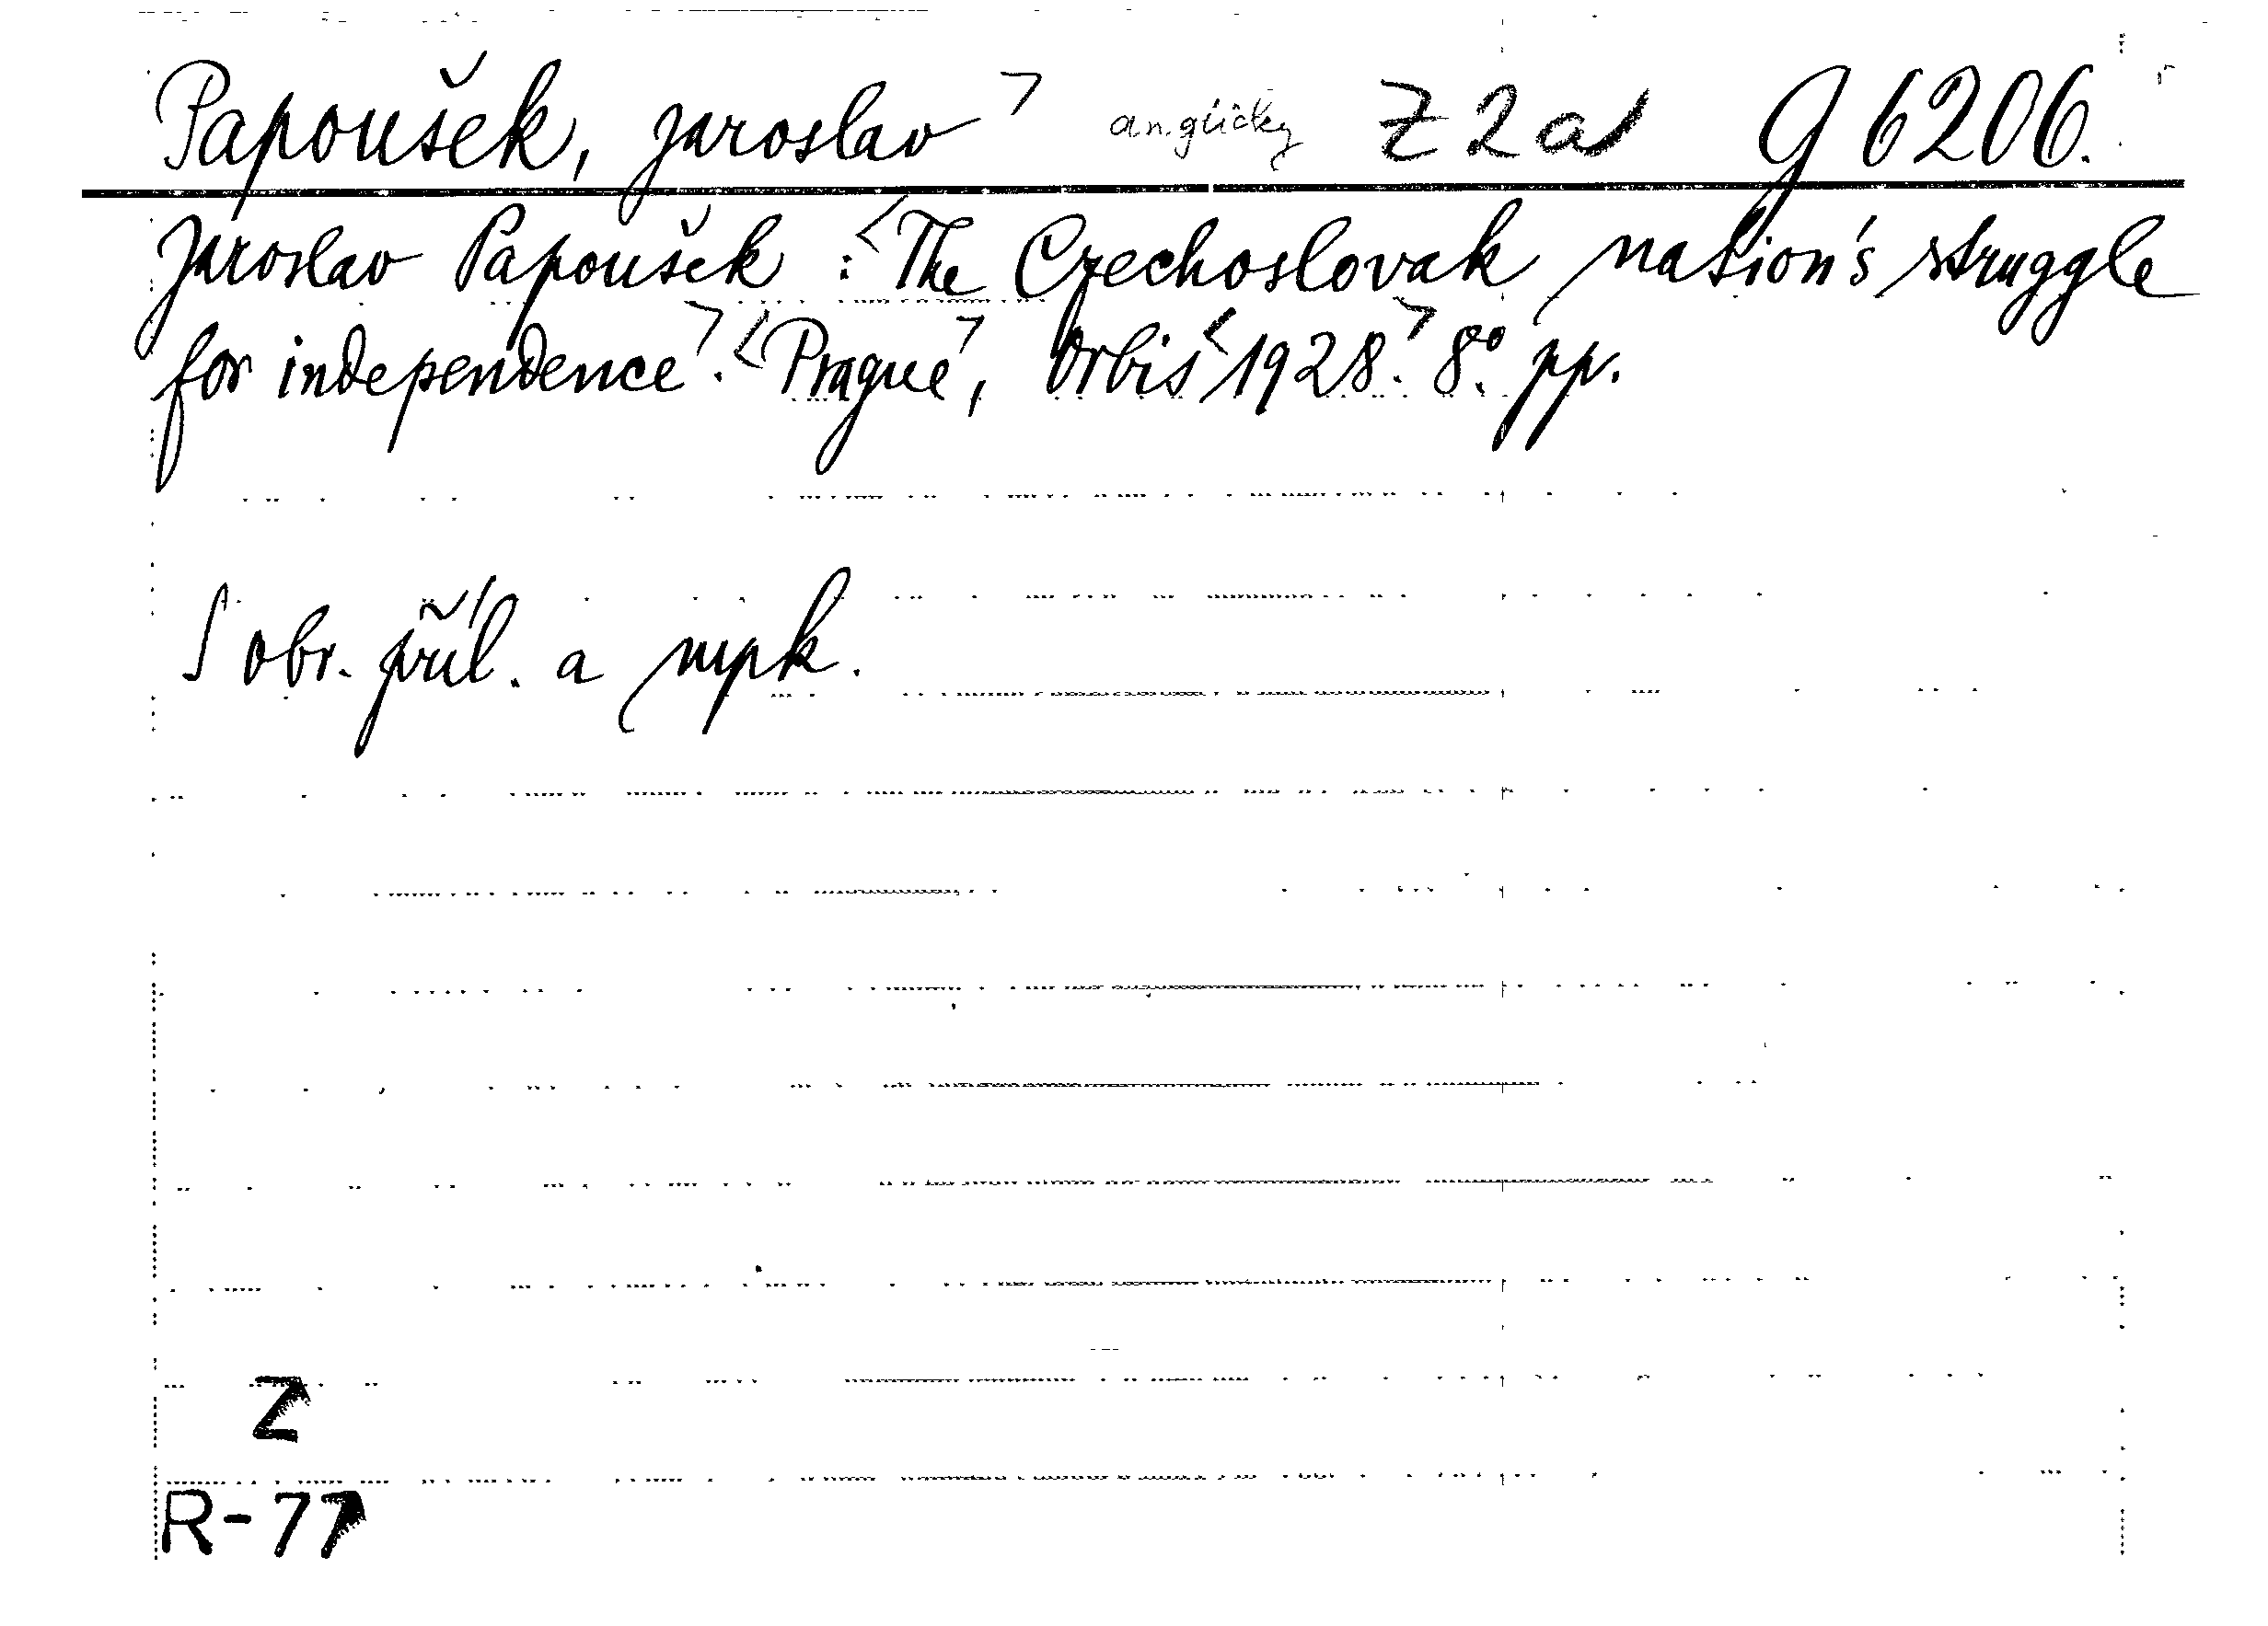 Papoušek, Jaroslav > anglicky Z 2 a G 6206.
Jaroslav Papoušek : <The Czechoslovak nation's struggle
for independence>. <Prague>, Orbis <1928.> 8° pp.
S obr. příl. a mpk.
Z
R-77